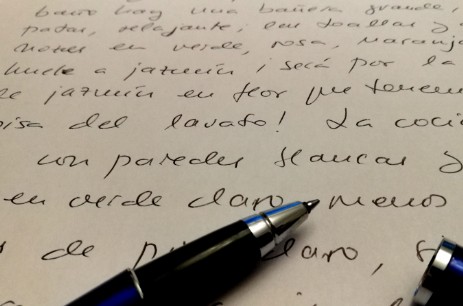 baño hay una bañera grande,
relajante, con toallas y
en verde, rosa, naranja
huele a jazmín ¡ será por la
jazmín en flor que tenemos
del lavabo! La coci
con paredes blancas y
en verde claro, menos
de claro,